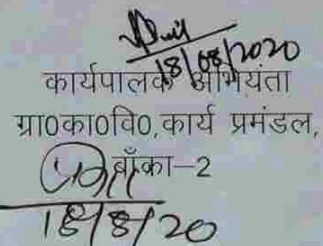 18/08/2020
कार्यपालक अभियंता
ग्रा0का0वि0,कार्य प्रमंडल,
बाँका–2
18/8/20